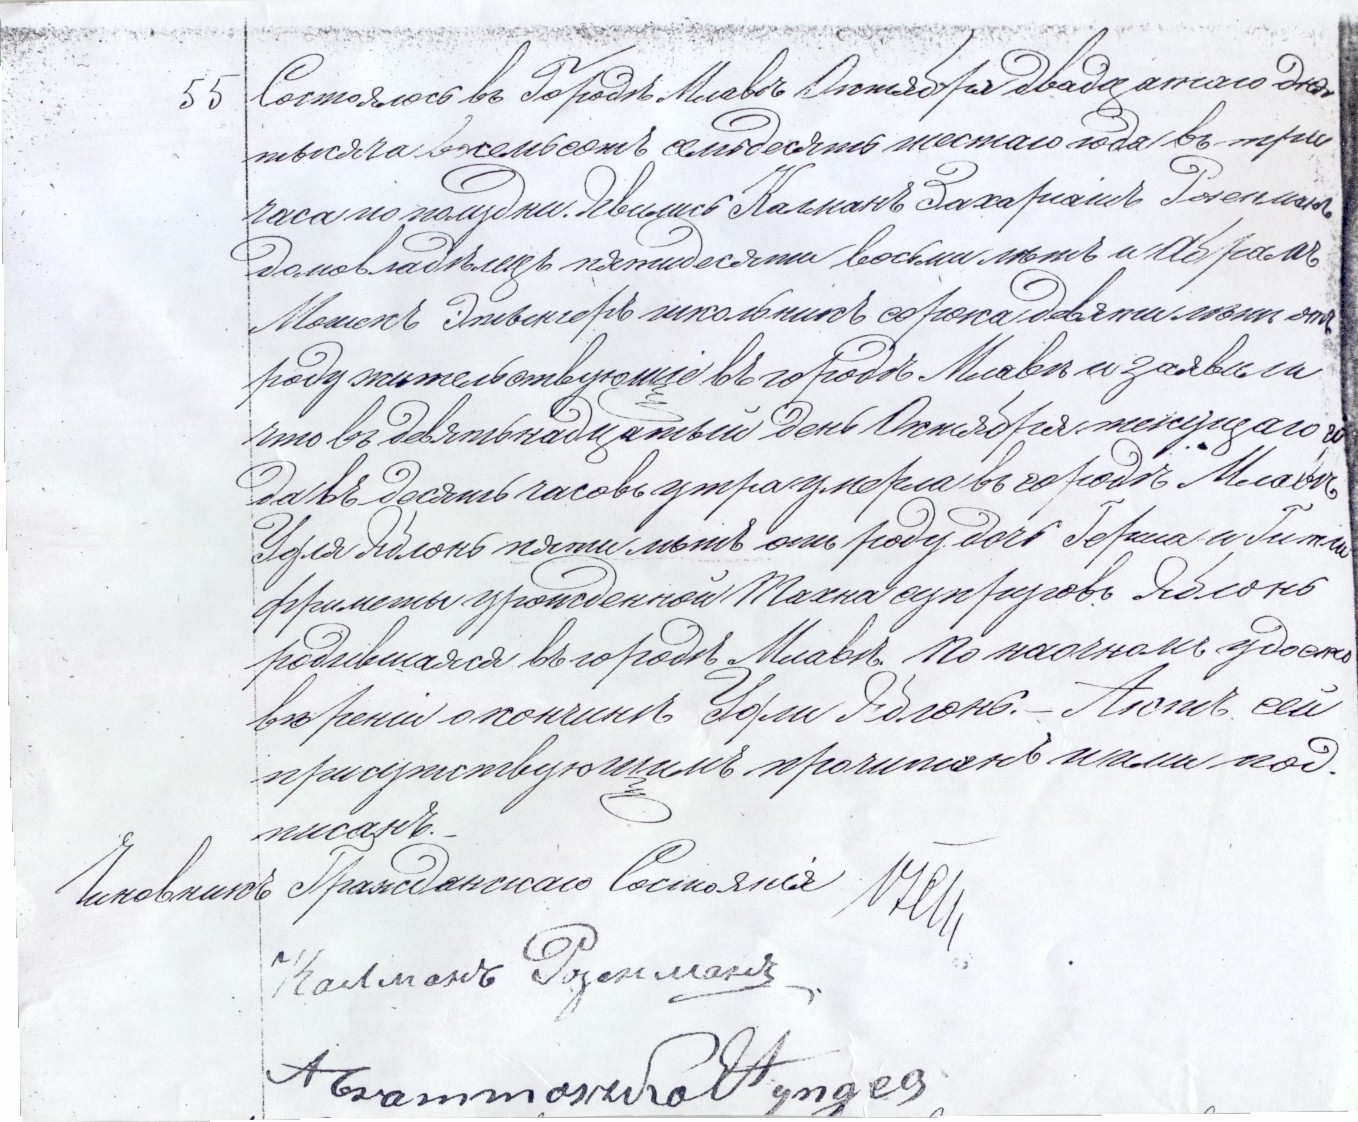 55 Состоялось въ Городѣ Млавѣ Октября двадцатаго дня
тысяча восемьсотъ семьдесятъ шестаго года въ три
часа по полудни. Явились Калманъ Захаріашъ Розенманъ
домовладѣлецъ пятидесяти восьми лѣтъ и Абрамъ
Мошекъ школьникъ сорока девяти лѣтъ отъ
роду жительствующіе въ городѣ Млавѣ и заявили
что въ девятьнадцатый день Октября текущаго го
да въ десять часовъ утра умерла въ городѣ Млавѣ
Яблонь пяти лѣтъ отъ роду дочь Герша и
Фриметы урожденной супруговъ Яблонь
родившаяся въ городѣ Млавѣ. По наочномъ удосто
вѣреніи о кончинѣ Яблонь. – Актъ сей
присутствующимъ прочитанъ и ими под.
писанъ. –
Чиновникъ Гражданскаго Состоянія
Калманъ Розенманъ